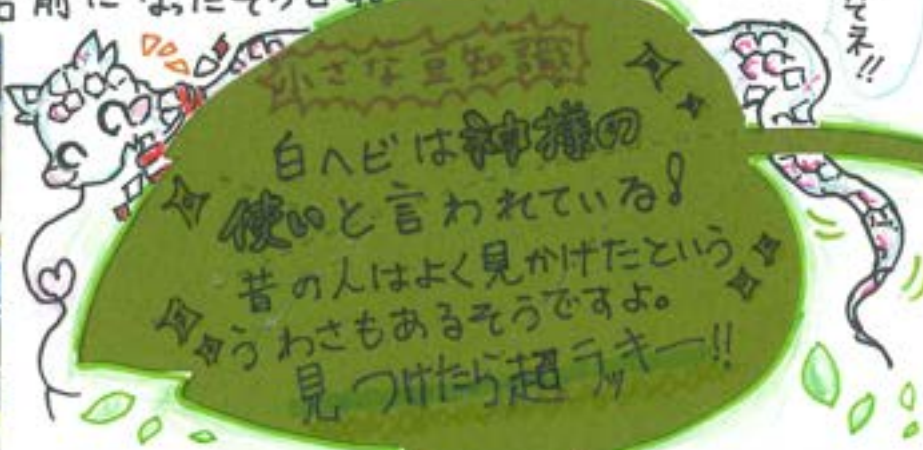 名前になったそうです。
てネ!!
小さな豆知識
白ヘビは神様の
使いと言われている!
昔の人はよく見かけたという
うわさもあるそうですよ。
見つけたら超ラッキー!!